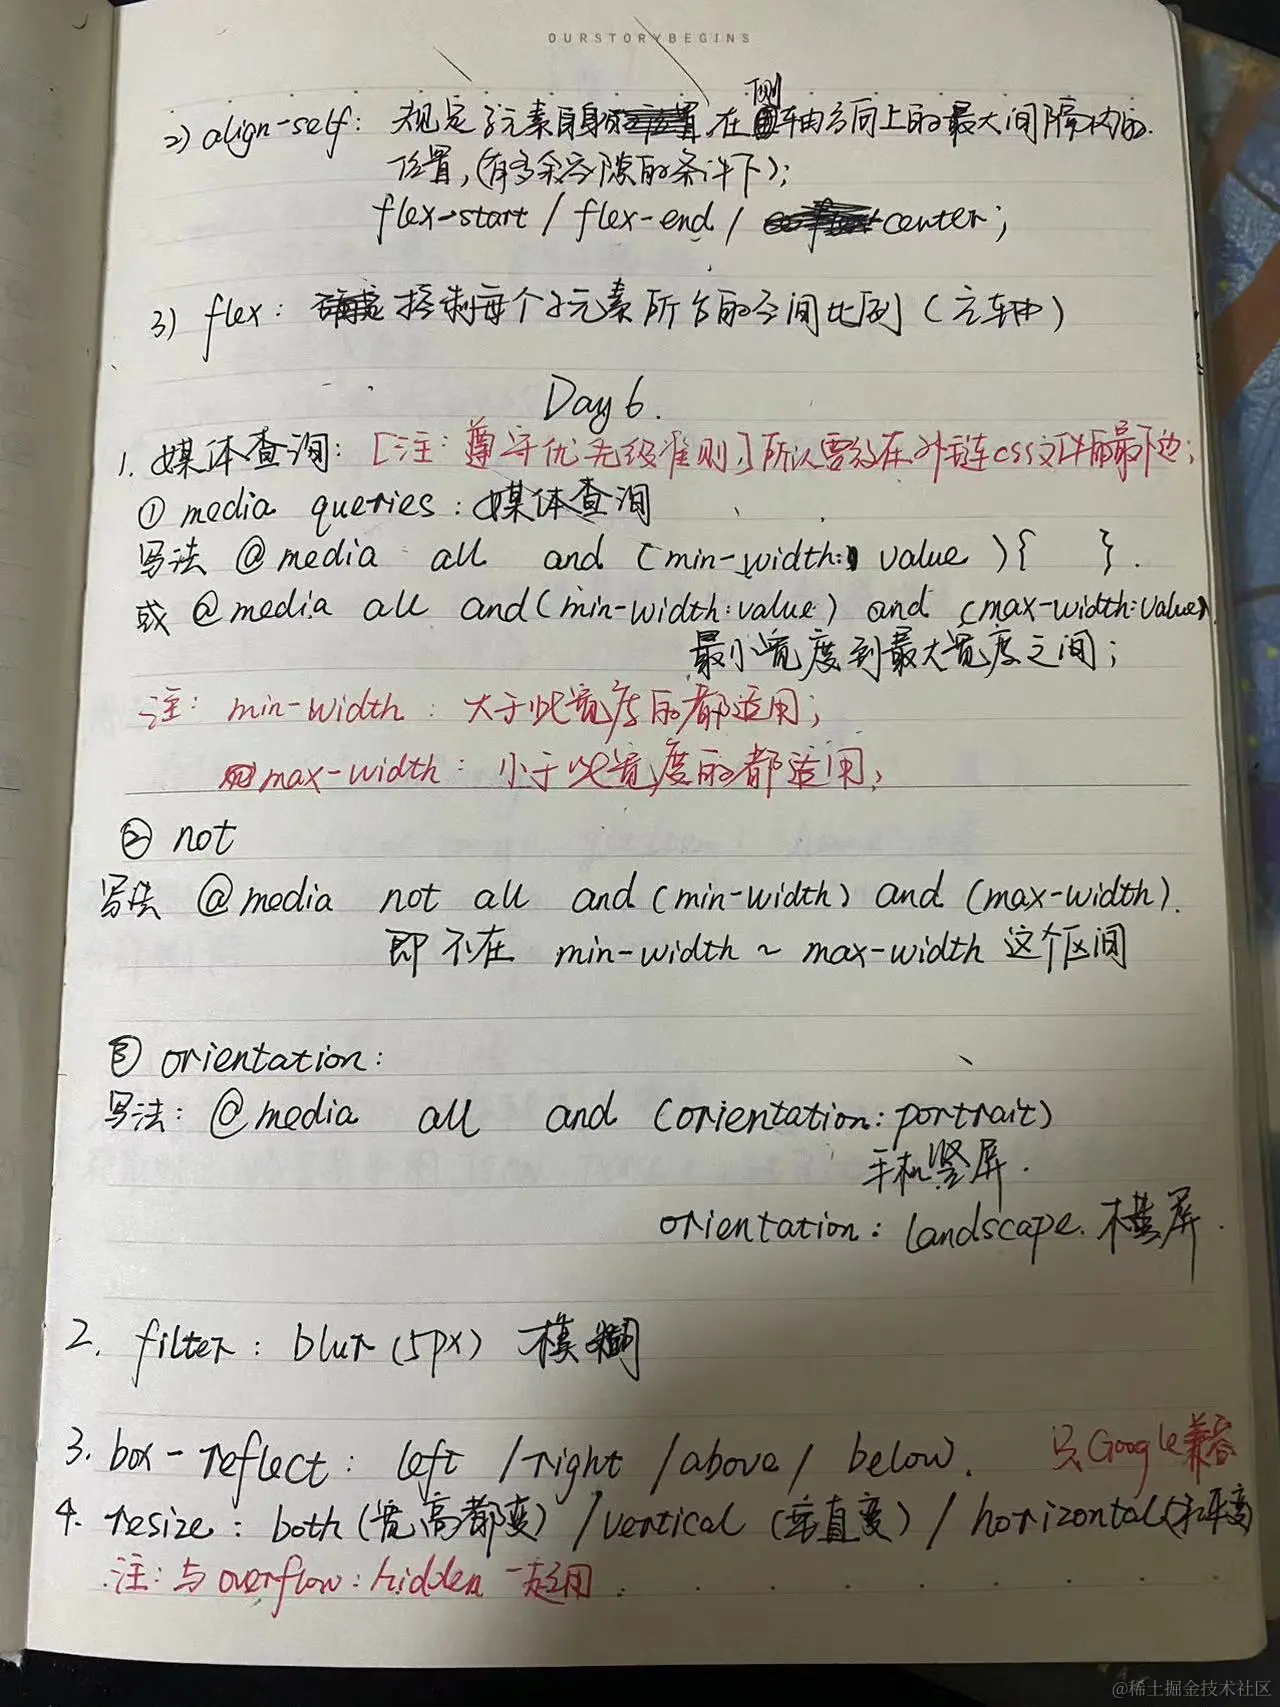 OURSTORYBEGINS
2) align-self: 规定子元素自身在侧轴方向上的最大间隔内的
位置,(有多余空隙的条件下);
flex-start / flex-end / center;
3) flex: 控制每个子元素所占的空间比例(主轴)
Day 6.
1. 媒体查询: [注: 遵守优先级准则]所以要放在外链css文件的最下边;
① media queries: 媒体查询
写法 @media all and (min-width: value ){ }.
或 @media all and(min-width:value) and (max-width:value)
最小宽度到最大宽度之间;
注: min-width: 大于此宽度的都适用;
max-width: 小于此宽度的都适用;
② not
写法 @media not all and (min-width) and (max-width).
即不在 min-width ~ max-width 这个区间
③ orientation:
写法: @media all and (orientation: portrait)
手机竖屏.
orientation: landscape. 横屏.
2. filter: blur(5px) 模糊
3. box-reflect: left / right / above / below. 只Google兼容
4. resize: both(宽高都变) / vertical (垂直变) / horizontal(水平变)
注: 与overflow: hidden 一起用.
@稀土掘金技术社区